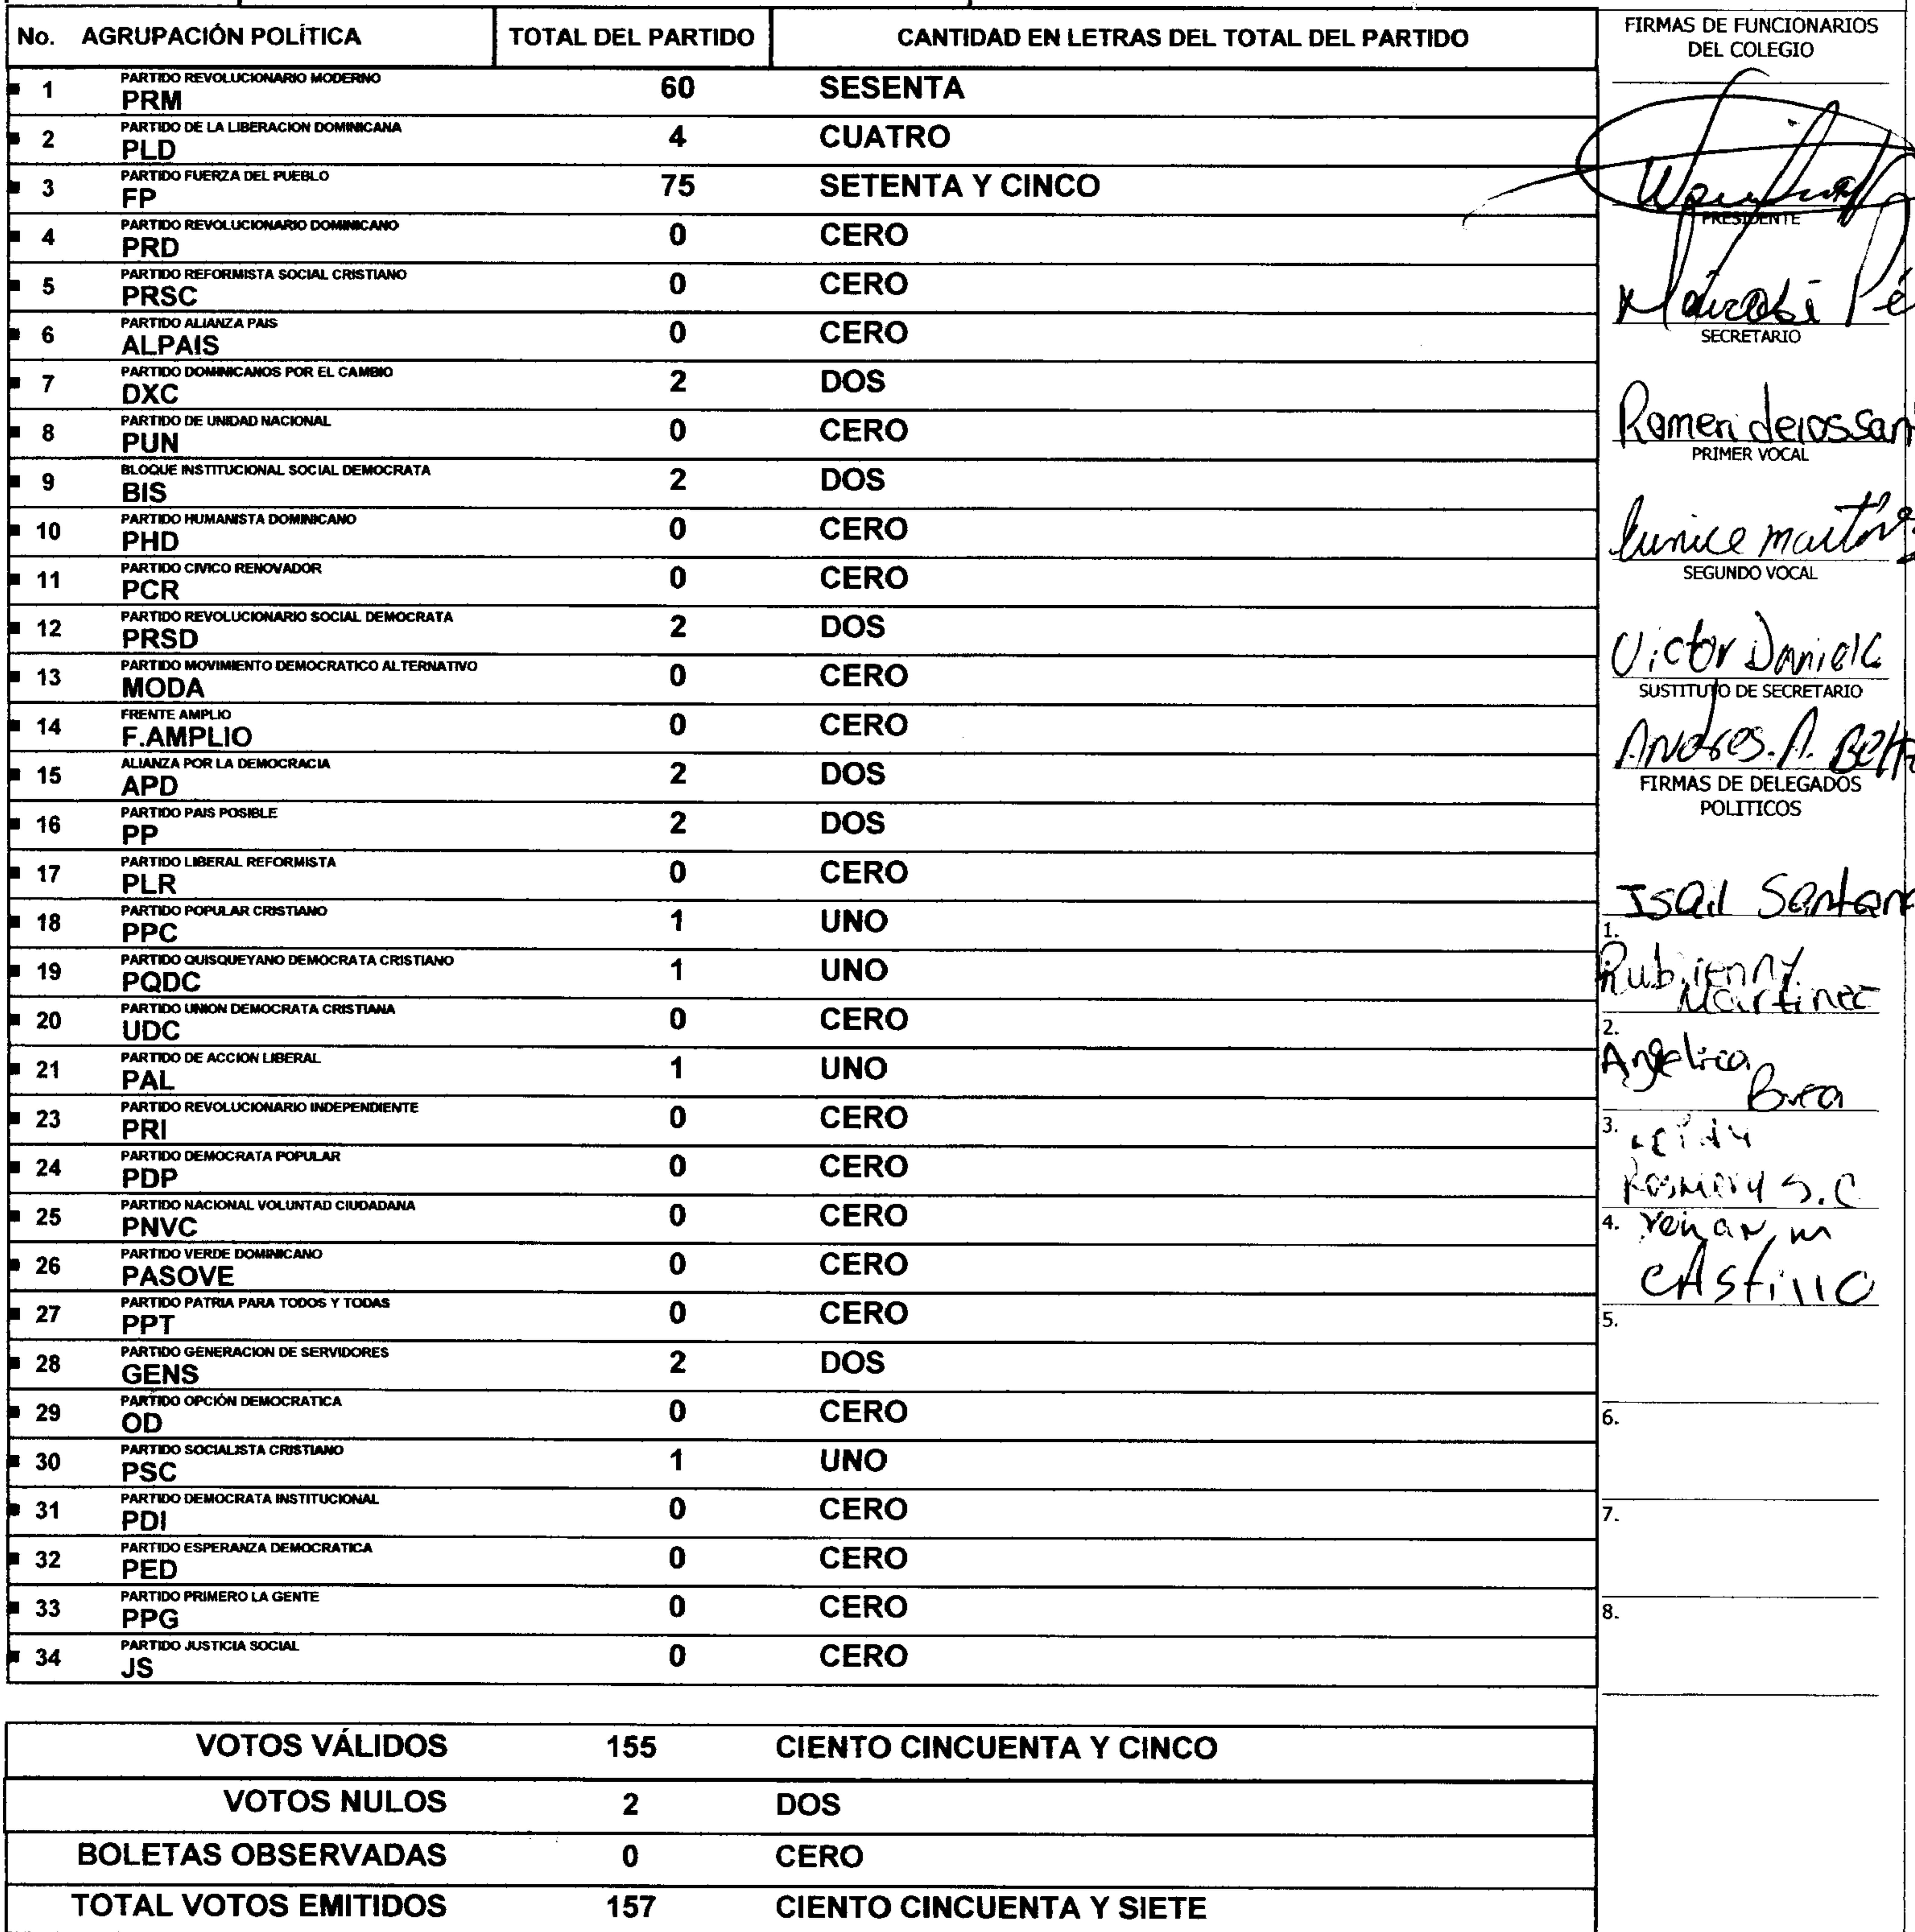 No. AGRUPACIÓN POLÍTICA TOTAL DEL PARTIDO CANTIDAD EN LETRAS DEL TOTAL DEL PARTIDO
1 PARTIDO REVOLUCIONARIO MODERNO
PRM 60 SESENTA
2 PARTIDO DE LA LIBERACION DOMINICANA
PLD 4 CUATRO
3 PARTIDO FUERZA DEL PUEBLO
FP 75 SETENTA Y CINCO
4 PARTIDO REVOLUCIONARIO DOMINICANO
PRD 0 CERO
5 PARTIDO REFORMISTA SOCIAL CRISTIANO
PRSC 0 CERO
6 PARTIDO ALIANZA PAIS
ALPAIS 0 CERO
7 PARTIDO DOMINICANOS POR EL CAMBIO
DXC 2 DOS
8 PARTIDO DE UNIDAD NACIONAL
PUN 0 CERO
9 BLOQUE INSTITUCIONAL SOCIAL DEMOCRATA
BIS 2 DOS
10 PARTIDO HUMANISTA DOMINICANO
PHD 0 CERO
11 PARTIDO CIVICO RENOVADOR
PCR 0 CERO
12 PARTIDO REVOLUCIONARIO SOCIAL DEMOCRATA
PRSD 2 DOS
13 PARTIDO MOVIMIENTO DEMOCRATICO ALTERNATIVO
MODA 0 CERO
14 FRENTE AMPLIO
F.AMPLIO 0 CERO
15 ALIANZA POR LA DEMOCRACIA
APD 2 DOS
16 PARTIDO PAIS POSIBLE
PP 2 DOS
17 PARTIDO LIBERAL REFORMISTA
PLR 0 CERO
18 PARTIDO POPULAR CRISTIANO
PPC 1 UNO
19 PARTIDO QUISQUEYANO DEMOCRATA CRISTIANO
PQDC 1 UNO
20 PARTIDO UNION DEMOCRATA CRISTIANA
UDC 0 CERO
21 PARTIDO DE ACCION LIBERAL
PAL 1 UNO
23 PARTIDO REVOLUCIONARIO INDEPENDIENTE
PRI 0 CERO
24 PARTIDO DEMOCRATA POPULAR
PDP 0 CERO
25 PARTIDO NACIONAL VOLUNTAD CIUDADANA
PNVC 0 CERO
26 PARTIDO VERDE DOMINICANO
PASOVE 0 CERO
27 PARTIDO PATRIA PARA TODOS Y TODAS
PPT 0 CERO
28 PARTIDO GENERACION DE SERVIDORES
GENS 2 DOS
29 PARTIDO OPCIÓN DEMOCRATICA
OD 0 CERO
30 PARTIDO SOCIALISTA CRISTIANO
PSC 1 UNO
31 PARTIDO DEMOCRATA INSTITUCIONAL
PDI 0 CERO
32 PARTIDO ESPERANZA DEMOCRATICA
PED 0 CERO
33 PARTIDO PRIMERO LA GENTE
PPG 0 CERO
34 PARTIDO JUSTICIA SOCIAL
JS 0 CERO
VOTOS VÁLIDOS 155 CIENTO CINCUENTA Y CINCO
VOTOS NULOS 2 DOS
BOLETAS OBSERVADAS 0 CERO
TOTAL VOTOS EMITIDOS 157 CIENTO CINCUENTA Y SIETE
FIRMAS DE FUNCIONARIOS
DEL COLEGIO
PRESIDENTE
SECRETARIO
Ramon delossan
PRIMER VOCAL
Eunice
SEGUNDO VOCAL
Victor Daniel
SUSTITUTO DE SECRETARIO
Andres. A.
FIRMAS DE DELEGADOS
POLITICOS
Isail Santana
1.
Rubienny
Martinez
2.
Angelica
Brea
3.
S.C
4.
Castillo
5.
6.
7.
8.